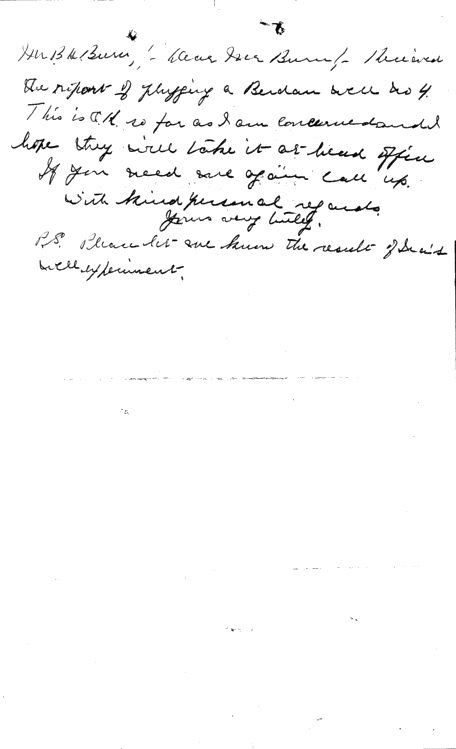 Mr B H Burn, :- Dear Mr Burn :- Received
the report of plugging a Berdan well no 4.
This is O.K. so far as I am concerned and I
hope they will take it at head office
If you need me again call up.
With kind personal regards
Yours very truly.
P.S. Please let me know the result of
well experiment.